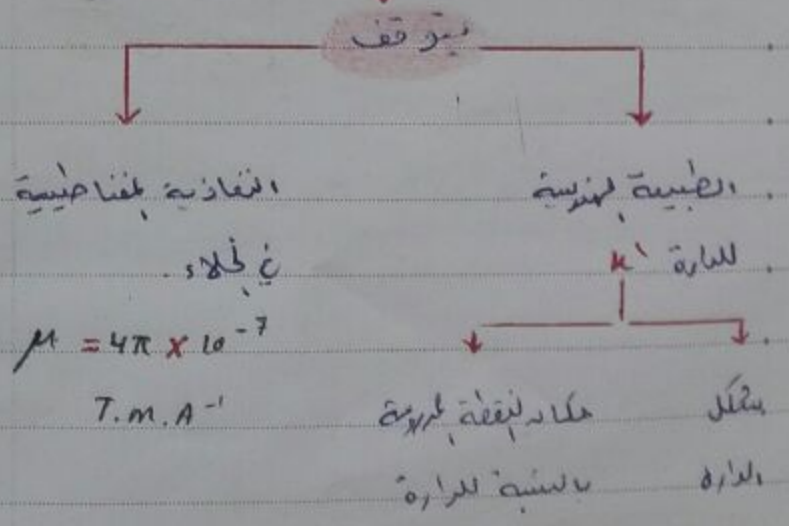 يتوقف
الطبيعة الهندسية
للدارة k'
شكل
الدارة
مكان النقطة المدروسة
بالنسبة للدارة
النفاذية المغناطيسية
في الخلاء.
μ = 4π × 10⁻⁷
T.m.A⁻¹